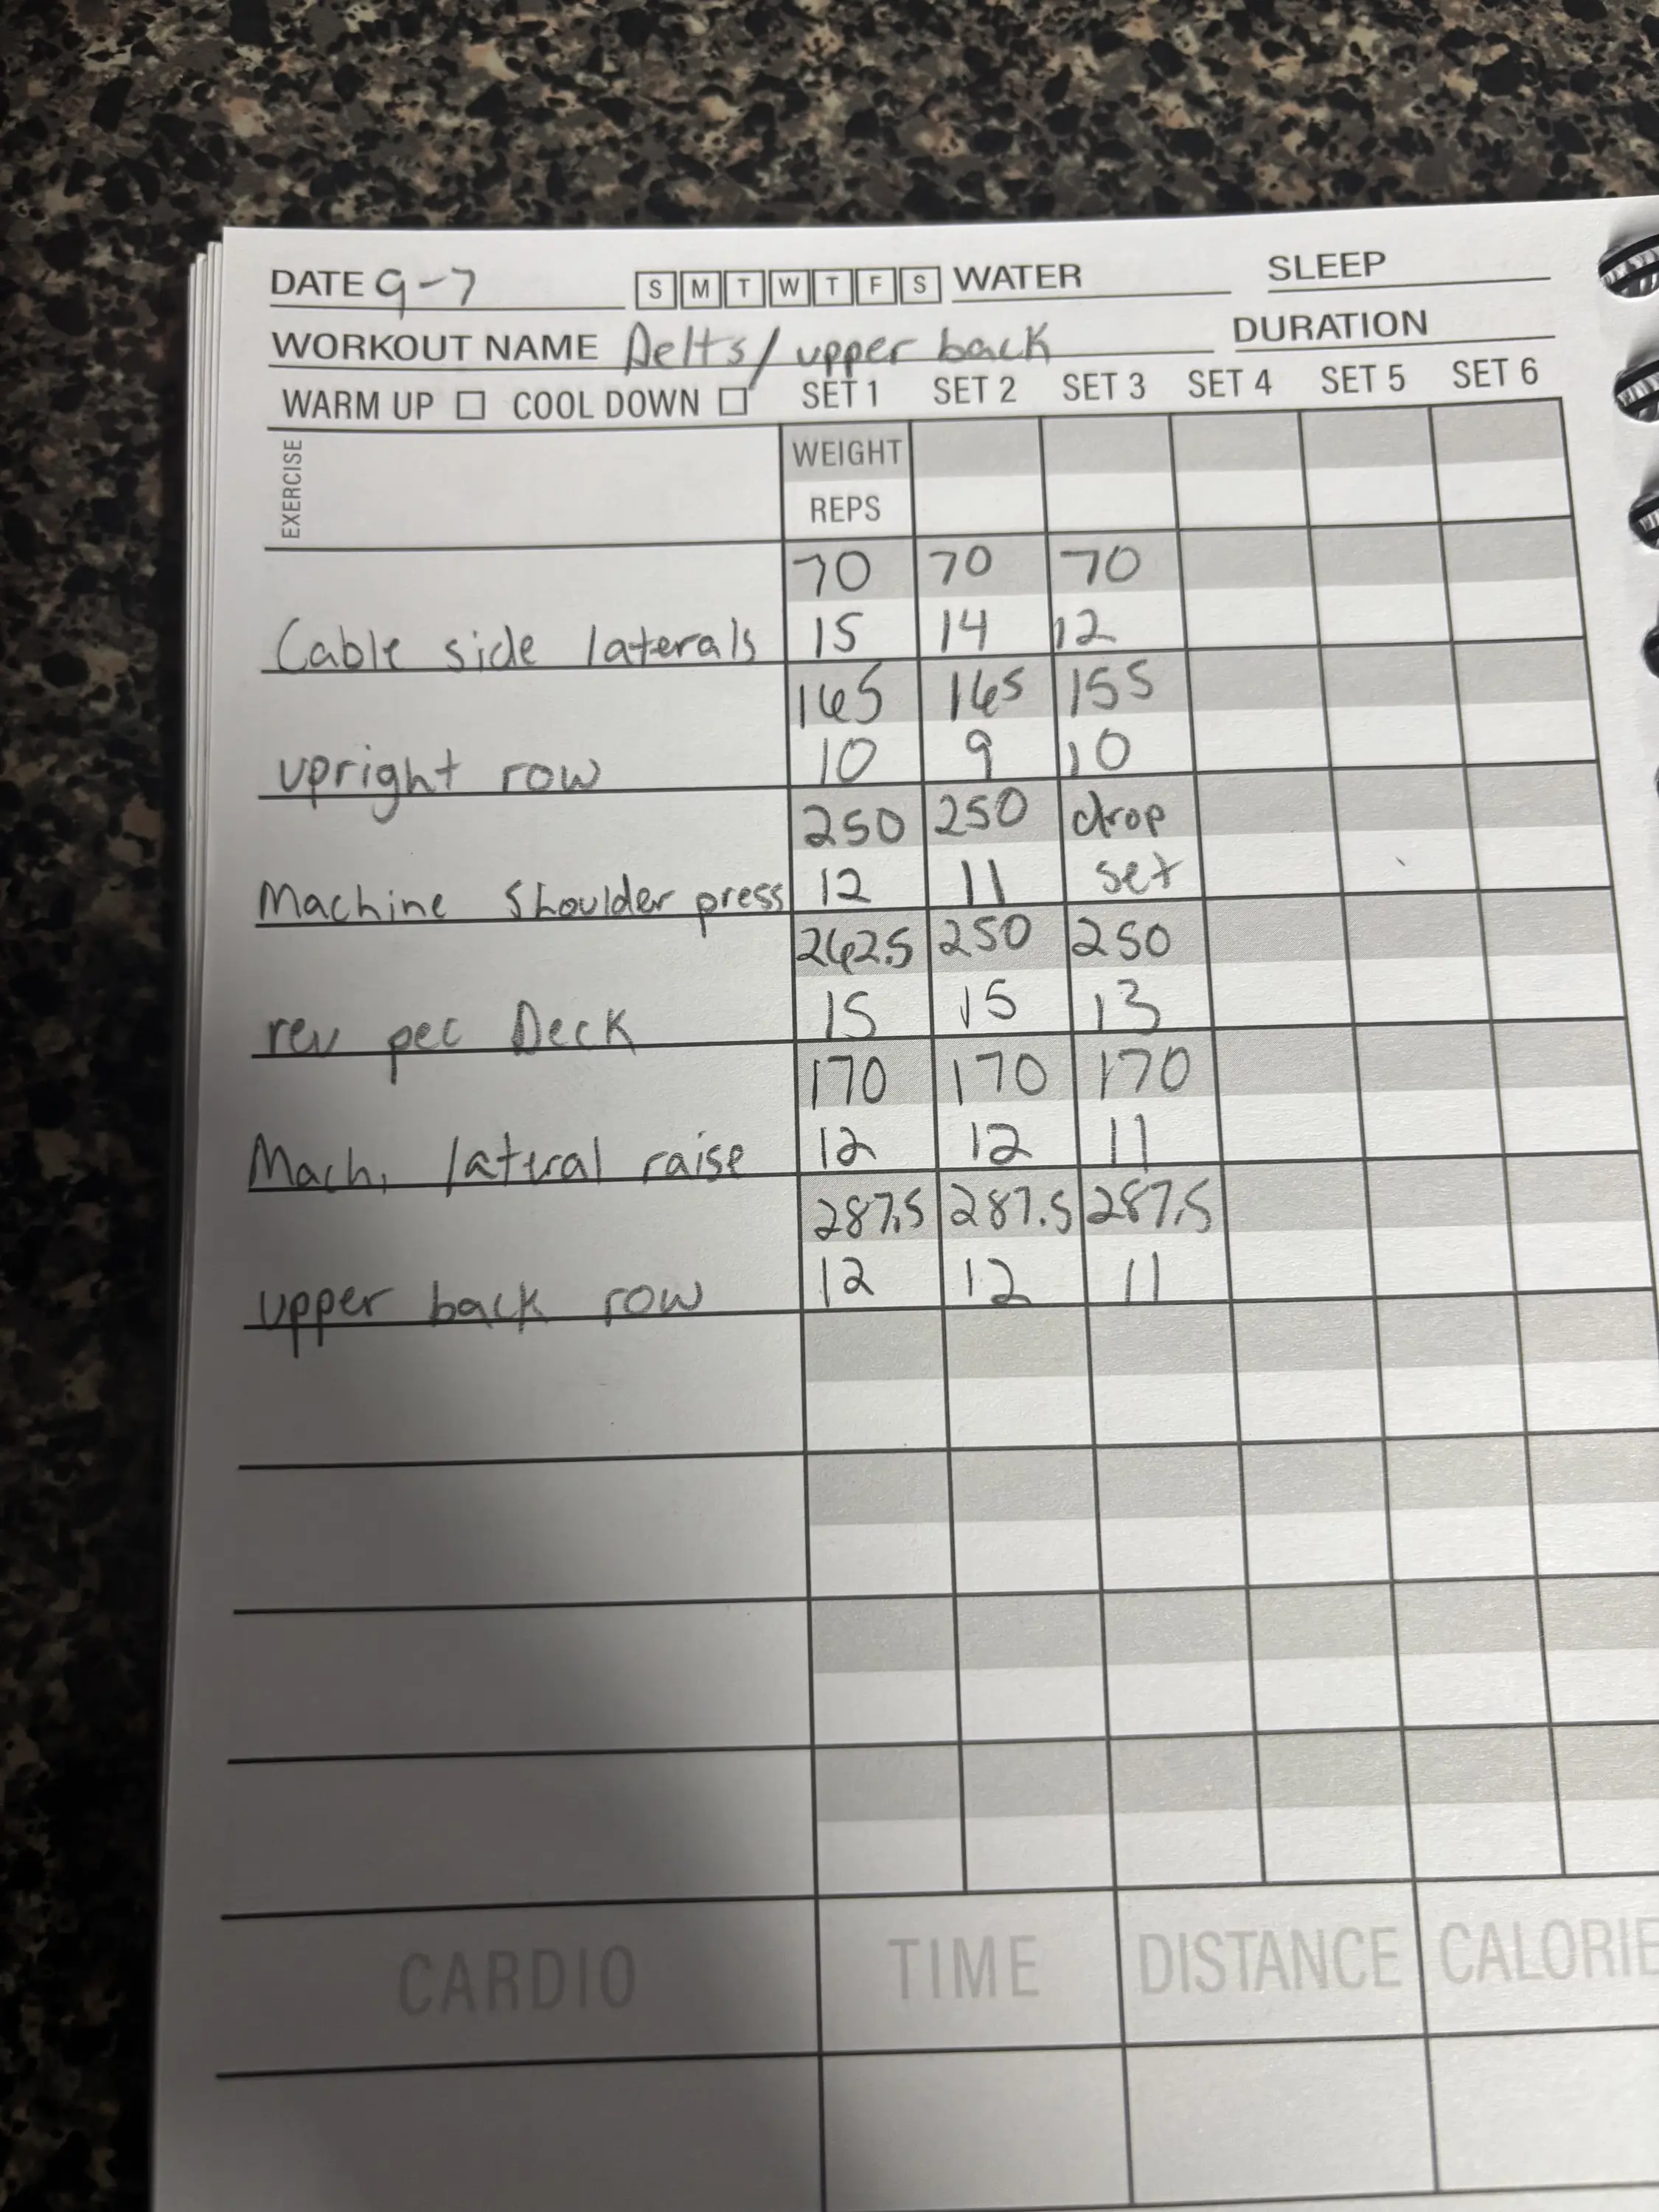 DATE 9-7 S M T W T F S WATER SLEEP
WORKOUT NAME Delts/upper back DURATION
WARM UP COOL DOWN SET 1 SET 2 SET 3 SET 4 SET 5 SET 6
EXERCISE WEIGHT
REPS
70 70 70
Cable side laterals 15 14 12
165 165 155
upright row 10 9 10
250 250 drop
Machine Shoulder press 12 11 set
262.5 250 250
rev pec Deck 15 15 13
170 170 170
Mach. lateral raise 12 12 11
287.5 287.5 287.5
upper back row 12 12 11
CARDIO TIME DISTANCE CALORIE